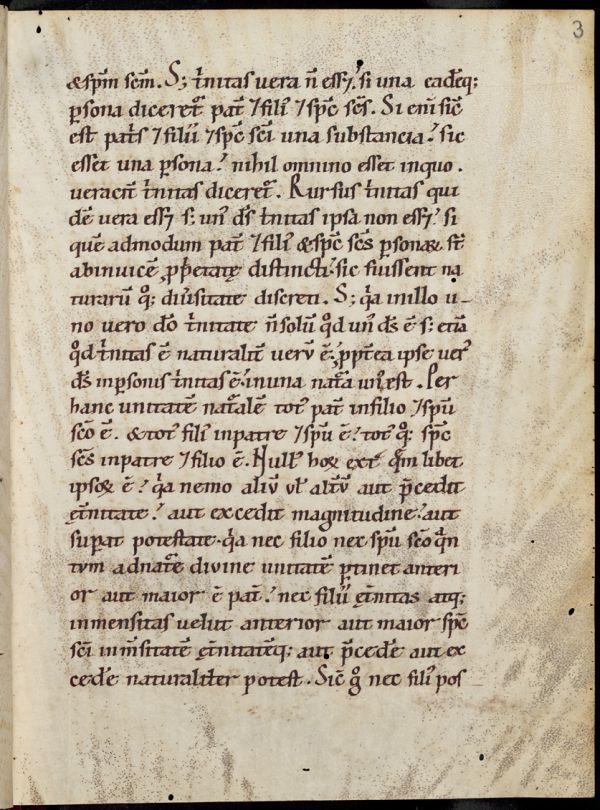 3
&sp̄m sc̄m. S; t̄nitas vera n̄ eēt, si una eadēq;
p̱sona diceret᷑ pat᷑ ⁊ filı᷑ ⁊ sp̄c sc̄s. Si enī sic̄
est pat᷑s ⁊ filíí ⁊ sp̄c sc̄i una substancia, sic
esset una p̱sona, nihil omnino esset inquo.
veracit᷑ t̄nitas diceret᷑. Rursus t̄nitas qui
dē vera eēt, s; un᷑ ds̄ t̄nitas ipsa non eēt, si
quē admodum pat᷑ ⁊ filı᷑ & sp̄c sc̄s p̱sonaꝝ st̄
abinvicē p̱p̄etatę distincti, sic fuissent na
turarū qꝫ divsitate discreti. S; q̄a inillo u-
no vero dō t̄nitate n̄solū qd̄ un᷑ ds̄ ē s; etiā
qd̄ t̄nitas ē naturalit᷑ verū ē, ꝓpt᷑ea ipse ver᷑
ds̄ inp̱sonis t̄nitas ē, inuna nat᷑a un᷑ est. Per
hanc unitatē nat᷑alē tot᷑ pat᷑ infilio ⁊ spū
sc̄o ē. &tot᷑ fili᷑ inpatre ⁊ spū ē, tot᷑ qꝫ sp̄c
sc̄s inpatre ⁊ filio ē. Null᷑ hoꝝ ext᷑ q̄m libet
ipsoꝝ ē, q̄a nemo aliū vl̄ alt᷑ū aut p̄cedit
ęt᷑nitate, aut excedit magnitudine, aut
sup̱at potestate. q̄a nec filio nec spū sc̄o q̄n
tvm adnat᷑ē divine unitatē p̱tinet anteri
or aut maior ē pat᷑, nec filíí ęt᷑nitas atqꝫ
inmensitas velut anterior aut maior sp̄c
sc̄i inm̄sitatē ęt᷑nitatēqꝫ aut p̄ced᷑e aut ex
ced᷑e naturalit᷑er potest. Sic̄ g̊ nec fili᷑ pos